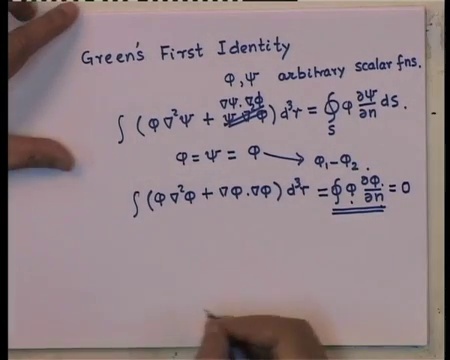 Green's First Identity
φ, ψ arbitrary scalar fns.
∇ψ.∇φ
∫ (φ∇²ψ + ) d³r = ∮_S φ ∂ψ/∂n dS.
φ = ψ = φ ⟶ φ₁-φ₂.
∫ (φ∇²φ + ∇φ.∇φ) d³r = ∮ φ ∂φ/∂n = 0